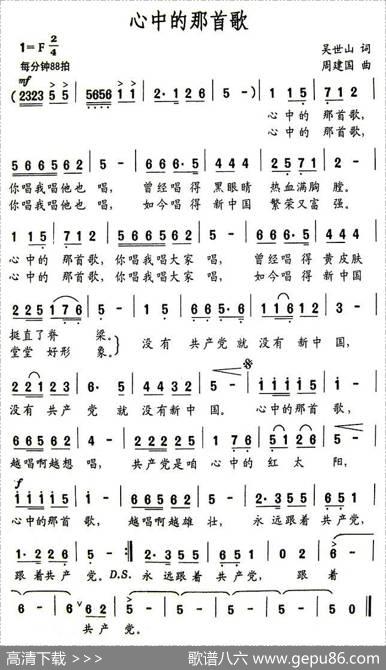 心中的那首歌
1=F 2/4
吴世山 词
每分钟88拍
周建国 曲
mf
(2323 5 5 | 5656 1 1 | 2·1 2 6 | 5 - ) | 1 1 5 | 7 1 2 |
心中的 那首歌,
心中的 那首歌,
5 6 6 5 6 2 | 5 - | 6 6 6·5 | 4 4 4 | 2 5 7 1 | 2 - |
你唱我唱他也 唱, 曾经唱得 黑眼睛 热血满胸 膛。
你唱我唱他也 唱, 如今唱得 新中国 繁荣又富 强。
1 1 5 | 7 1 2 | 5 6 6 5 6 2 | 5 - | 6 6 6·5 | 4 4 4 |
心中的 那首歌, 你唱我唱大家 唱, 曾经唱得 黄皮肤
心中的 那首歌, 你唱我唱大家 唱, 如今唱得 新中国
2 2 5 1 7 6 | 5 - | 1· 5 | 6 6 6 5·6 | 1 1 6 1 2 | 3 - |
挺直了脊 梁。
堂堂 好形 象。
没有 共产党 就没有新中 国,
2 2 1 2 3 | 6· 5 | 4 4 3 2 | 5 - | 5 - | i i i i 5 | i - |
没有 共产 党 就 没有新中 国。 心中的那首 歌,
6 6 5 6 2 | 4 - | 2 2 2 2 5 | 1 7 6 | 5 1 2 6 | 5 - |
越唱啊越想 唱, 共产党是咱 心中的 红 太 阳,
f
i i i i 5 | i - | 6 6 5 6 5 | 5 - | 2· 3 5 5 | 6 6 5 6 |
心中的那首 歌, 越唱啊越雄 壮, 永 远跟着 共产党,
1· 2 2 6 | 5 - :‖ 2· 3 5 5 | 6 6 5 6 | 0 2 6 |
跟 着共产 党。 D.S. 永 远跟着 共产党, 跟着
6 - | 6 6 2 | 5 - | 5 - | 5 - | 5 0 ‖
共产 党。
高清下载 >>>
歌谱八六 www.gepu86.com